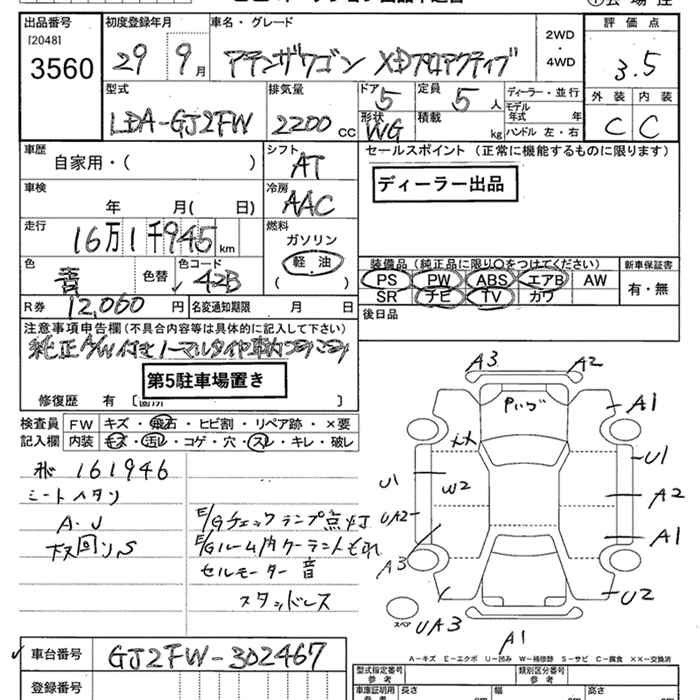 出品番号
[2048]
3560
初度登録年月
29年 9月
車名・グレード
アテンザワゴン XDプロアクティブ
2WD
・
4WD
評価点
3.5
型式
LDA-GJ2FW
排気量
2200 CC
ドア 5
形状 WG
定員 5 人
積載 kg
ディーラー・並行
モデル年式 年
ハンドル 左・右
外装 内装
C C
車歴
自家用・( )
シフト
AT
セールスポイント(正常に機能するものに限ります)
ディーラー出品
車検
年 月( 日)
冷房
AAC
走行
16万1千945km
燃料
ガソリン
軽油
( )
色
青
色替
色コード
42B
装備品(純正品に限り○をつけてください)
PS PW ABS エアB AW
SR ナビ TV カワ
新車保証書
有・無
R券 12,060円
名変通知期限 月 日
後日品
注意事項申告欄(不具合内容等は具体的に記入して下さい)
純正A/W付きノーマルタイヤ車内
第5駐車場置き
修復歴 有 [箇所 ]
検査員 FW キズ・飛石・ヒビ割・リペア跡・×要
記入欄 内装 キズ・汚レ・コゲ・穴・スレ・キレ・破レ
161946
シートヘタリ
A.U
下回りS
E/Gチェックランプ点灯
E/Gルーム内クーラントもれ
セルモーター音
スタッドレス
A3 A2
A1
U1
U1
W2
A2
UA2
A1
A3
U2
スペア
UA3
A1
A-キズ E-エクボ U-凹み W-補修跡 S-サビ C-腐食 ××-交換済
車台番号 GJ2FW-302467
登録番号
型式指定番号
参考
類別区分番号
参考
車庫証明用
参考
長さ cm
幅 cm
高さ cm